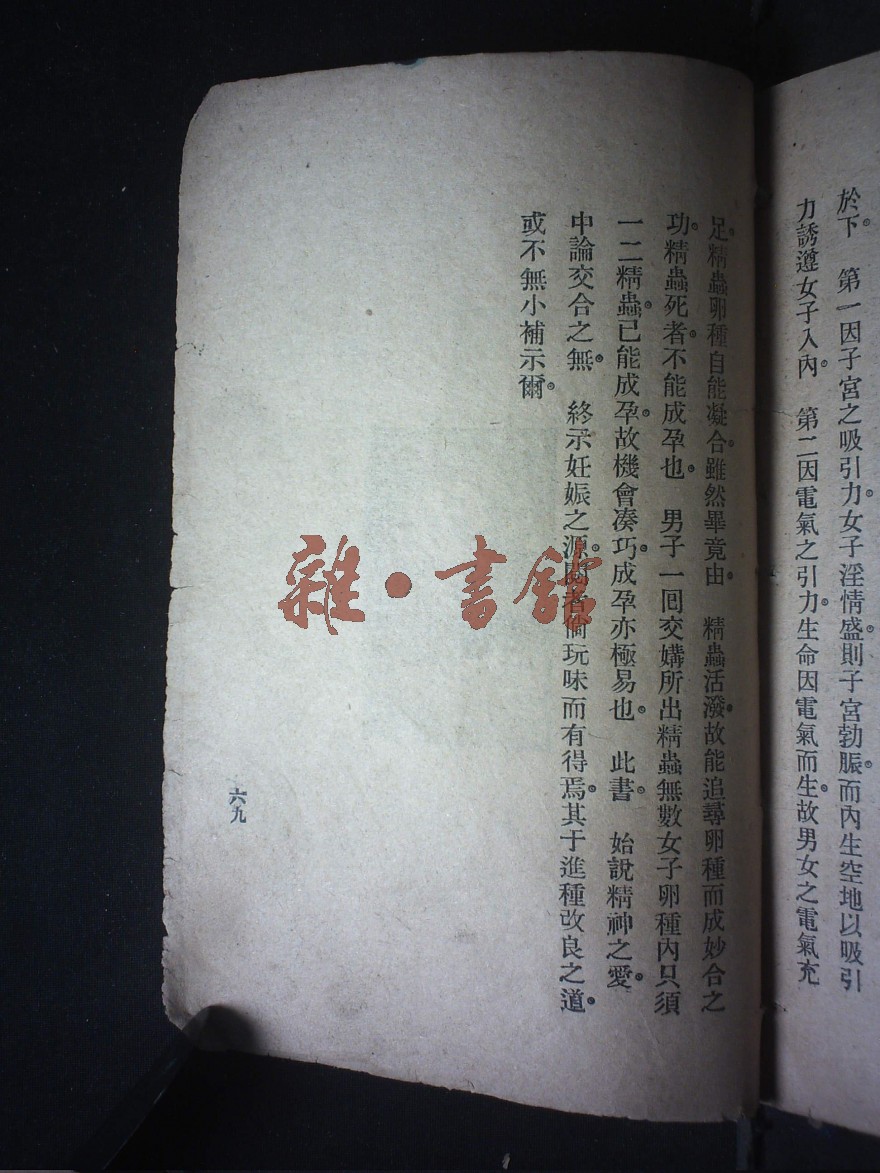 於下。　第一因子宮之吸引力。女子淫情盛。則子宮勃脹。而內生空地以吸引
力誘遵女子入內。　第二因電氣之引力。生命因電氣而生。故男女之電氣充
足。精蟲卵種自能凝合。雖然畢竟由。　精蟲活潑。故能追尋卵種而成妙合之
功。精蟲死者。不能成孕也。　男子一囘交媾所出精蟲無數女子卵種內只須
一二精蟲。已能成孕。故機會凑巧。成孕亦極易也。　此書。　始說精神之愛。
中論交合之無。　終示妊娠之源。閱者倘玩味而有得焉。其于進種改良之道。
或不無小補示爾。
六九
雜·書館